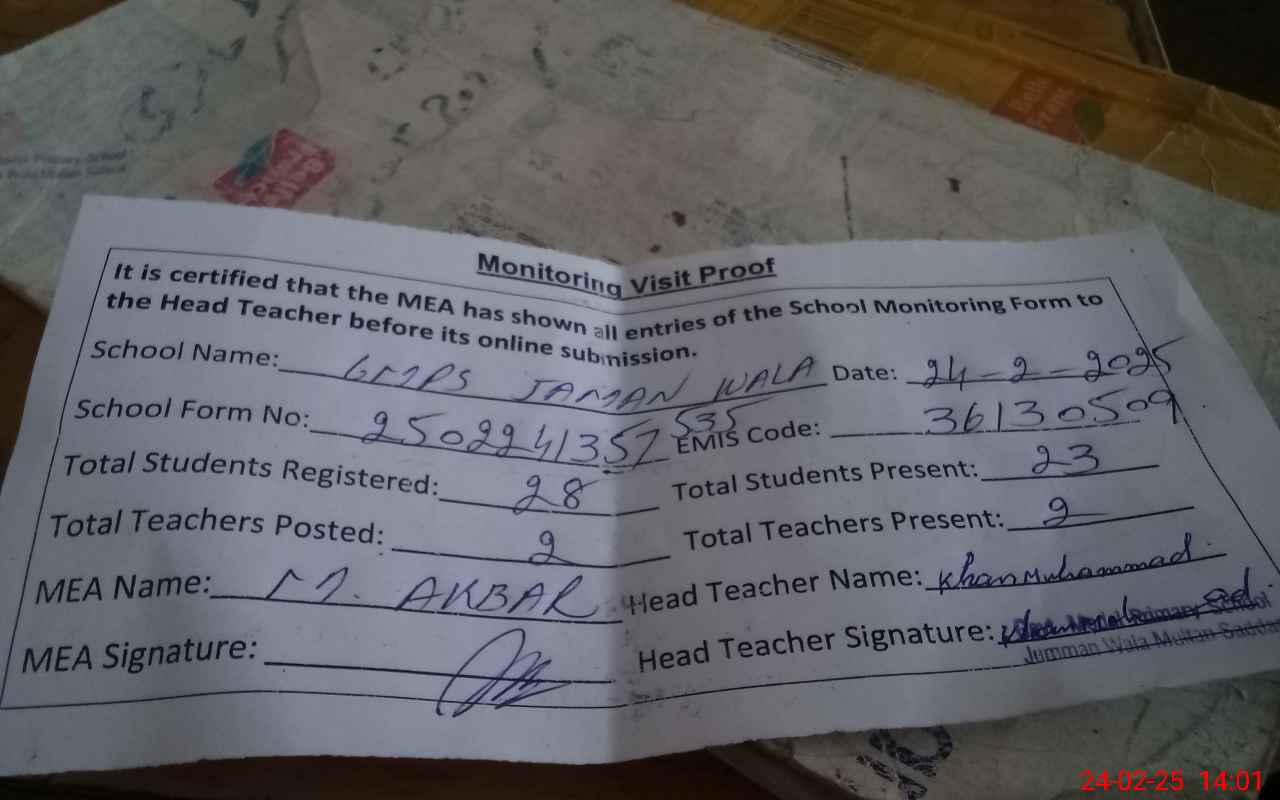 Monitoring Visit Proof
It is certified that the MEA has shown all entries of the School Monitoring Form to
the Head Teacher before its online submission.
School Name: GMPS JAMAN WALA Date: 24-2-2025
School Form No: 2502241357 535 EMIS Code: 36130509
Total Students Registered: 28 Total Students Present: 23
Total Teachers Posted: 2 Total Teachers Present: 2
MEA Name: M. AKBAR Head Teacher Name: Khan Muhammad
MEA Signature: Head Teacher Signature:
Primary School
Jumman Wala Multan Saddar
24-02-25 14:01